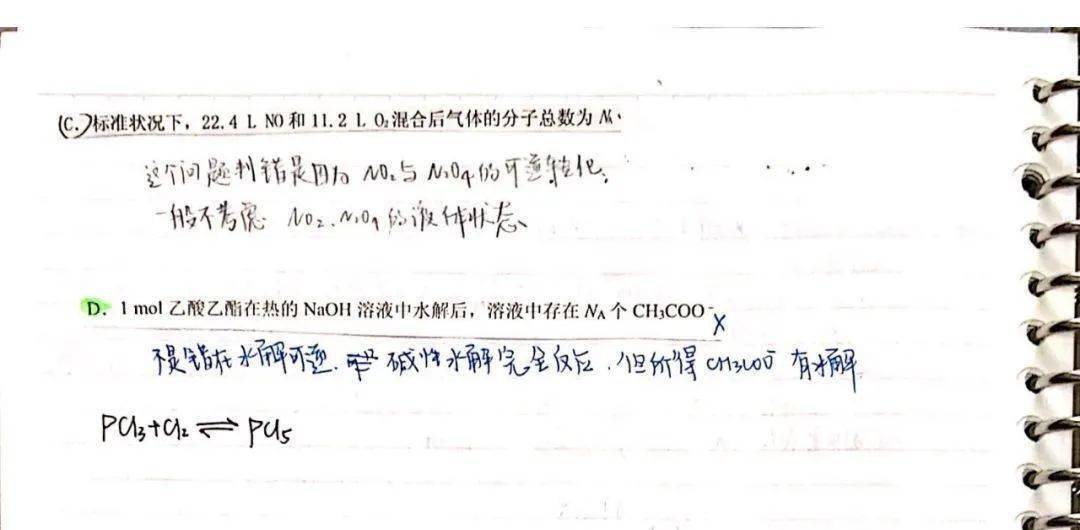 (C.)标准状况下，22.4 L NO和11.2 L O₂混合后气体的分子总数为 Nₐ.
这个问题判错是因为 NO₂与N₂O₄的可逆转化，
一般不考虑 NO₂、N₂O₄的液体状态、
D. 1 mol 乙酸乙酯在热的 NaOH 溶液中水解后，溶液中存在 Nₐ 个 CH₃COO⁻ X
不是错在水解可逆. 碱性水解完全反应. 但所得 CH3COO⁻ 有水解
PCl₃+Cl₂⇌PCl₅